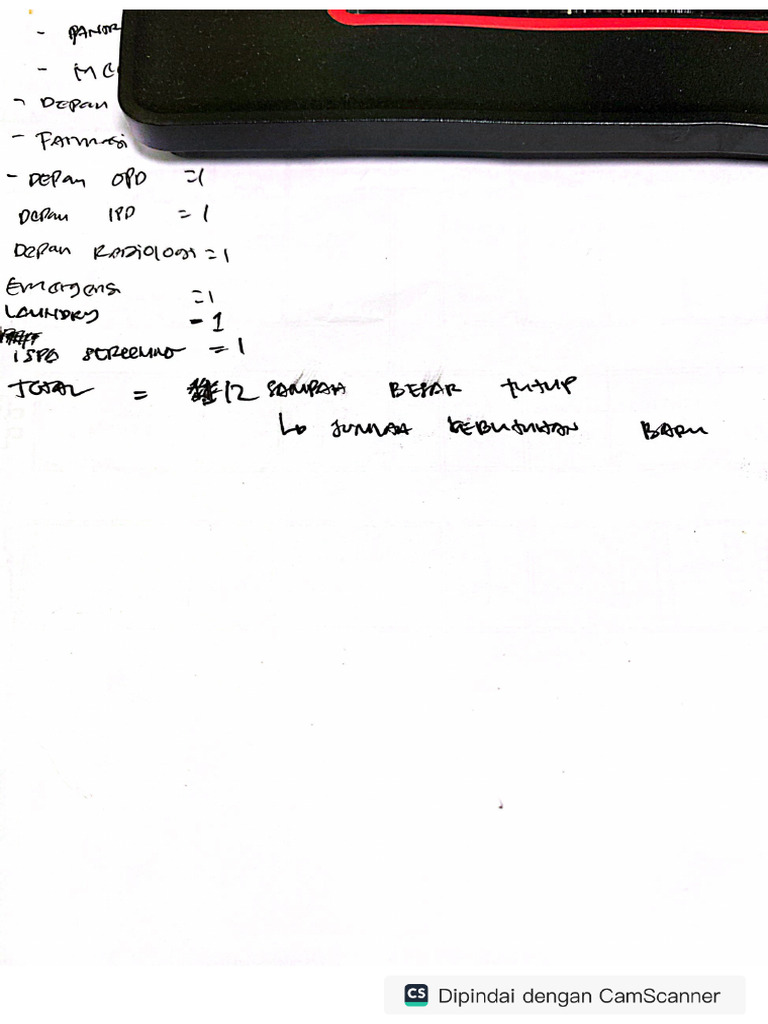 -
-
- Depan
- Farmasi
- Depan OPD =1
Depan IPD = 1
Depan Radiologi = 1
Emergensi =1
Laundry - 1
ISPA Screening = 1
TOTAL = 12 SAMPAH BESAR TUTUP
↳ JUMLAH KEBUTUHAN BARU
CS Dipindai dengan CamScanner